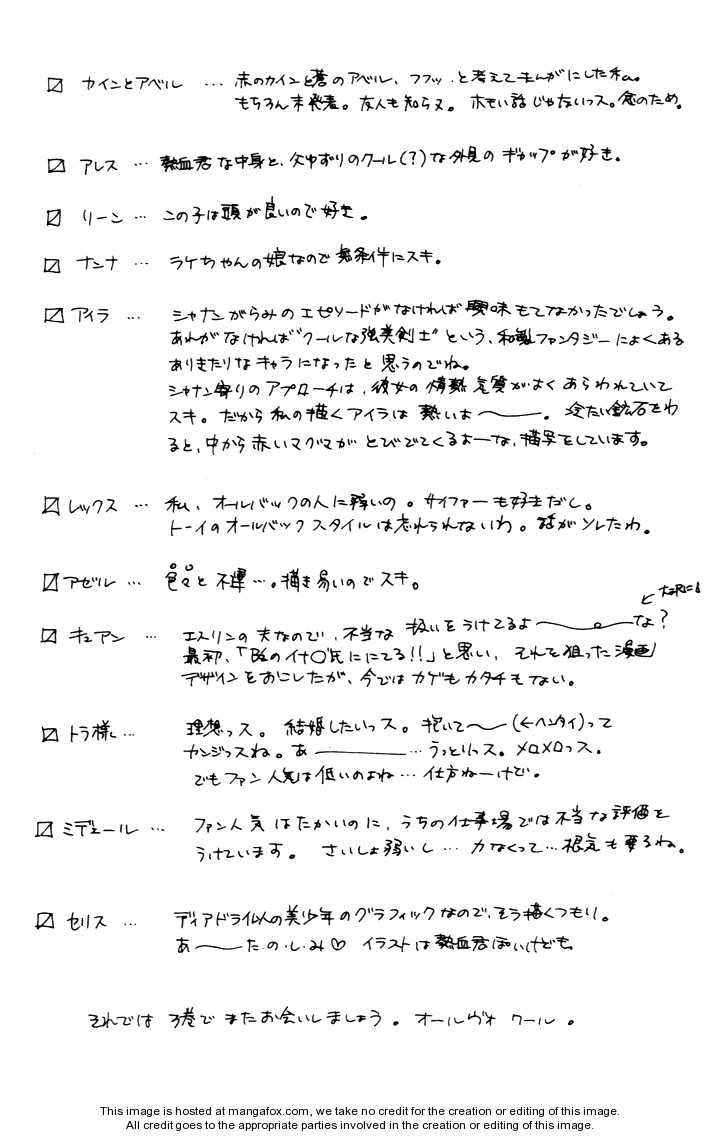 カインとアベル … 赤のカインと蒼のアベル、フフッ と考えてまんがにした私。
もちろん未発表。友人も知らヌ。ホモい話じゃないっス。念のため。
アレス … 熱血君な中身と、父ゆずりのクール(?)な外見のギャップが好き。
リーン … この子は頭が良いので好き。
ナンナ … ラケちゃんの娘なので無条件にスキ。
アイラ … シャナンがらみのエピソードがなければ興味もてなかったでしょう。
あれがなければ"クールな強美剣士"という、和製ファンタジーによくある
ありきたりなキャラになったと思うのでね。
シャナン寄りのアプローチは、彼女の情熱気質がよくあらわれていて
スキ。だから私の描くアイラは熱いよ〜。冷たい鉱石をわ
ると、中から赤いマグマがとびでてくるよーな、描写をしています。
レックス … 私、オールバックの人に弱いの。サイファーも好きだし。
トーイのオールバックスタイルは忘れられないわ。話がソレたわ。
アゼル … 色々と不運…。描き易いのでスキ。
キュアン … エスリンの夫なので、不当な扱いをうけてるよ〜な?
最初、「Bzのイナ○氏ににてる!!」と思い、それを狙った漫画
デザインをおこしたが、今ではカゲもカタチもない。
トラ様 … 理想っス。結婚したいっス。抱いて〜(←ヘンタイ)って
カンジっスね。あ――…うっとりっス。メロメロっス。
でもファン人気は低いのよね…仕方ねーけど。
ミデェール … ファン人気はたかいのに、うちの仕事場では不当な評価を
うけています。さいしょ弱いし…力なくって…根気も要るね。
セリス … ディアドラ似の美少年のグラフィックなので、そう描くつもり。
あ〜た・の・し・み♡ イラストは熱血君ぽいけども。
それでは 3巻で またお会いしましょう。オールヴォ クール。
This image is hosted at mangafox.com, we take no credit for the creation or editing of this image.
All credit goes to the appropriate parties involved in the creation or editing of this image.